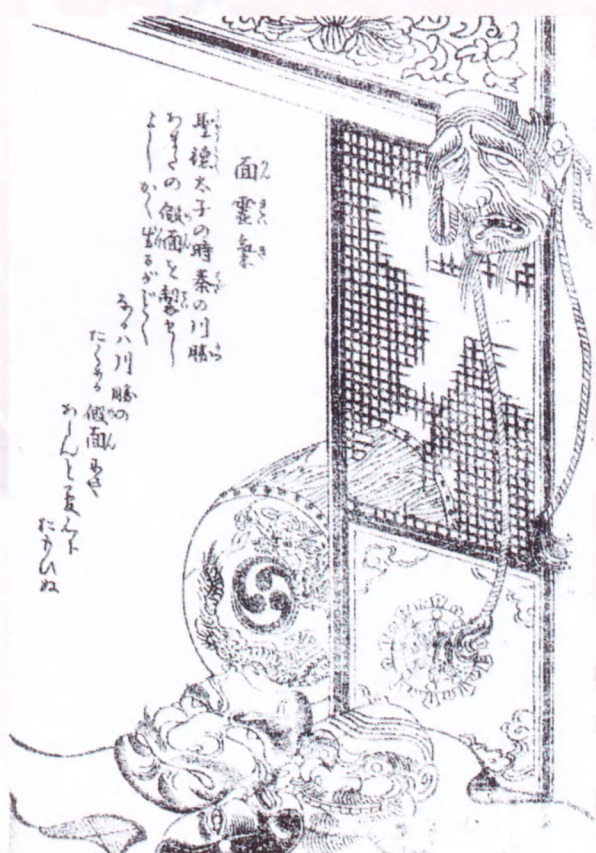 面靈氣
聖徳太子の時秦の川勝
あまたの假面を製せし
よしかく生るがごとく
なるハ川勝の
たくめる假面にや
あらんと夢心に
おもひぬ